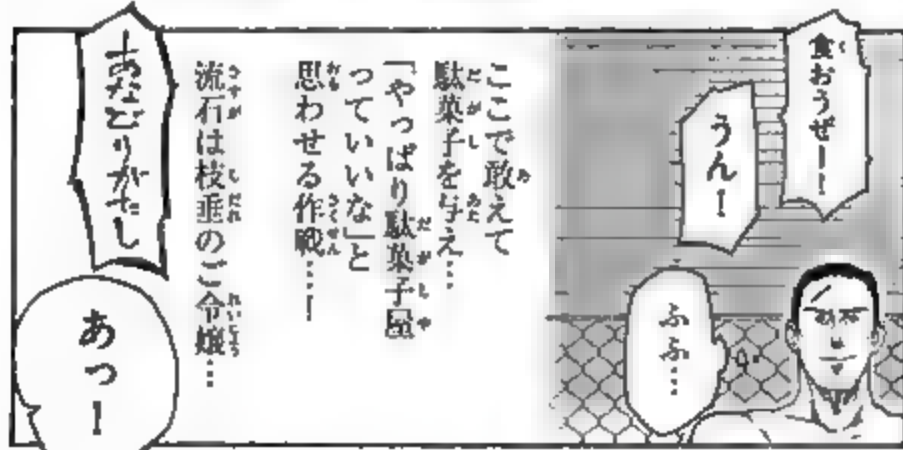 食おうぜー!
うん!
ふふ…
ここで敢えて
駄菓子を与え…
「やっぱり駄菓子屋
っていいな」と
思わせる作戦…!
流石は枝垂のご令嬢…
あなどりがたし
あっ!